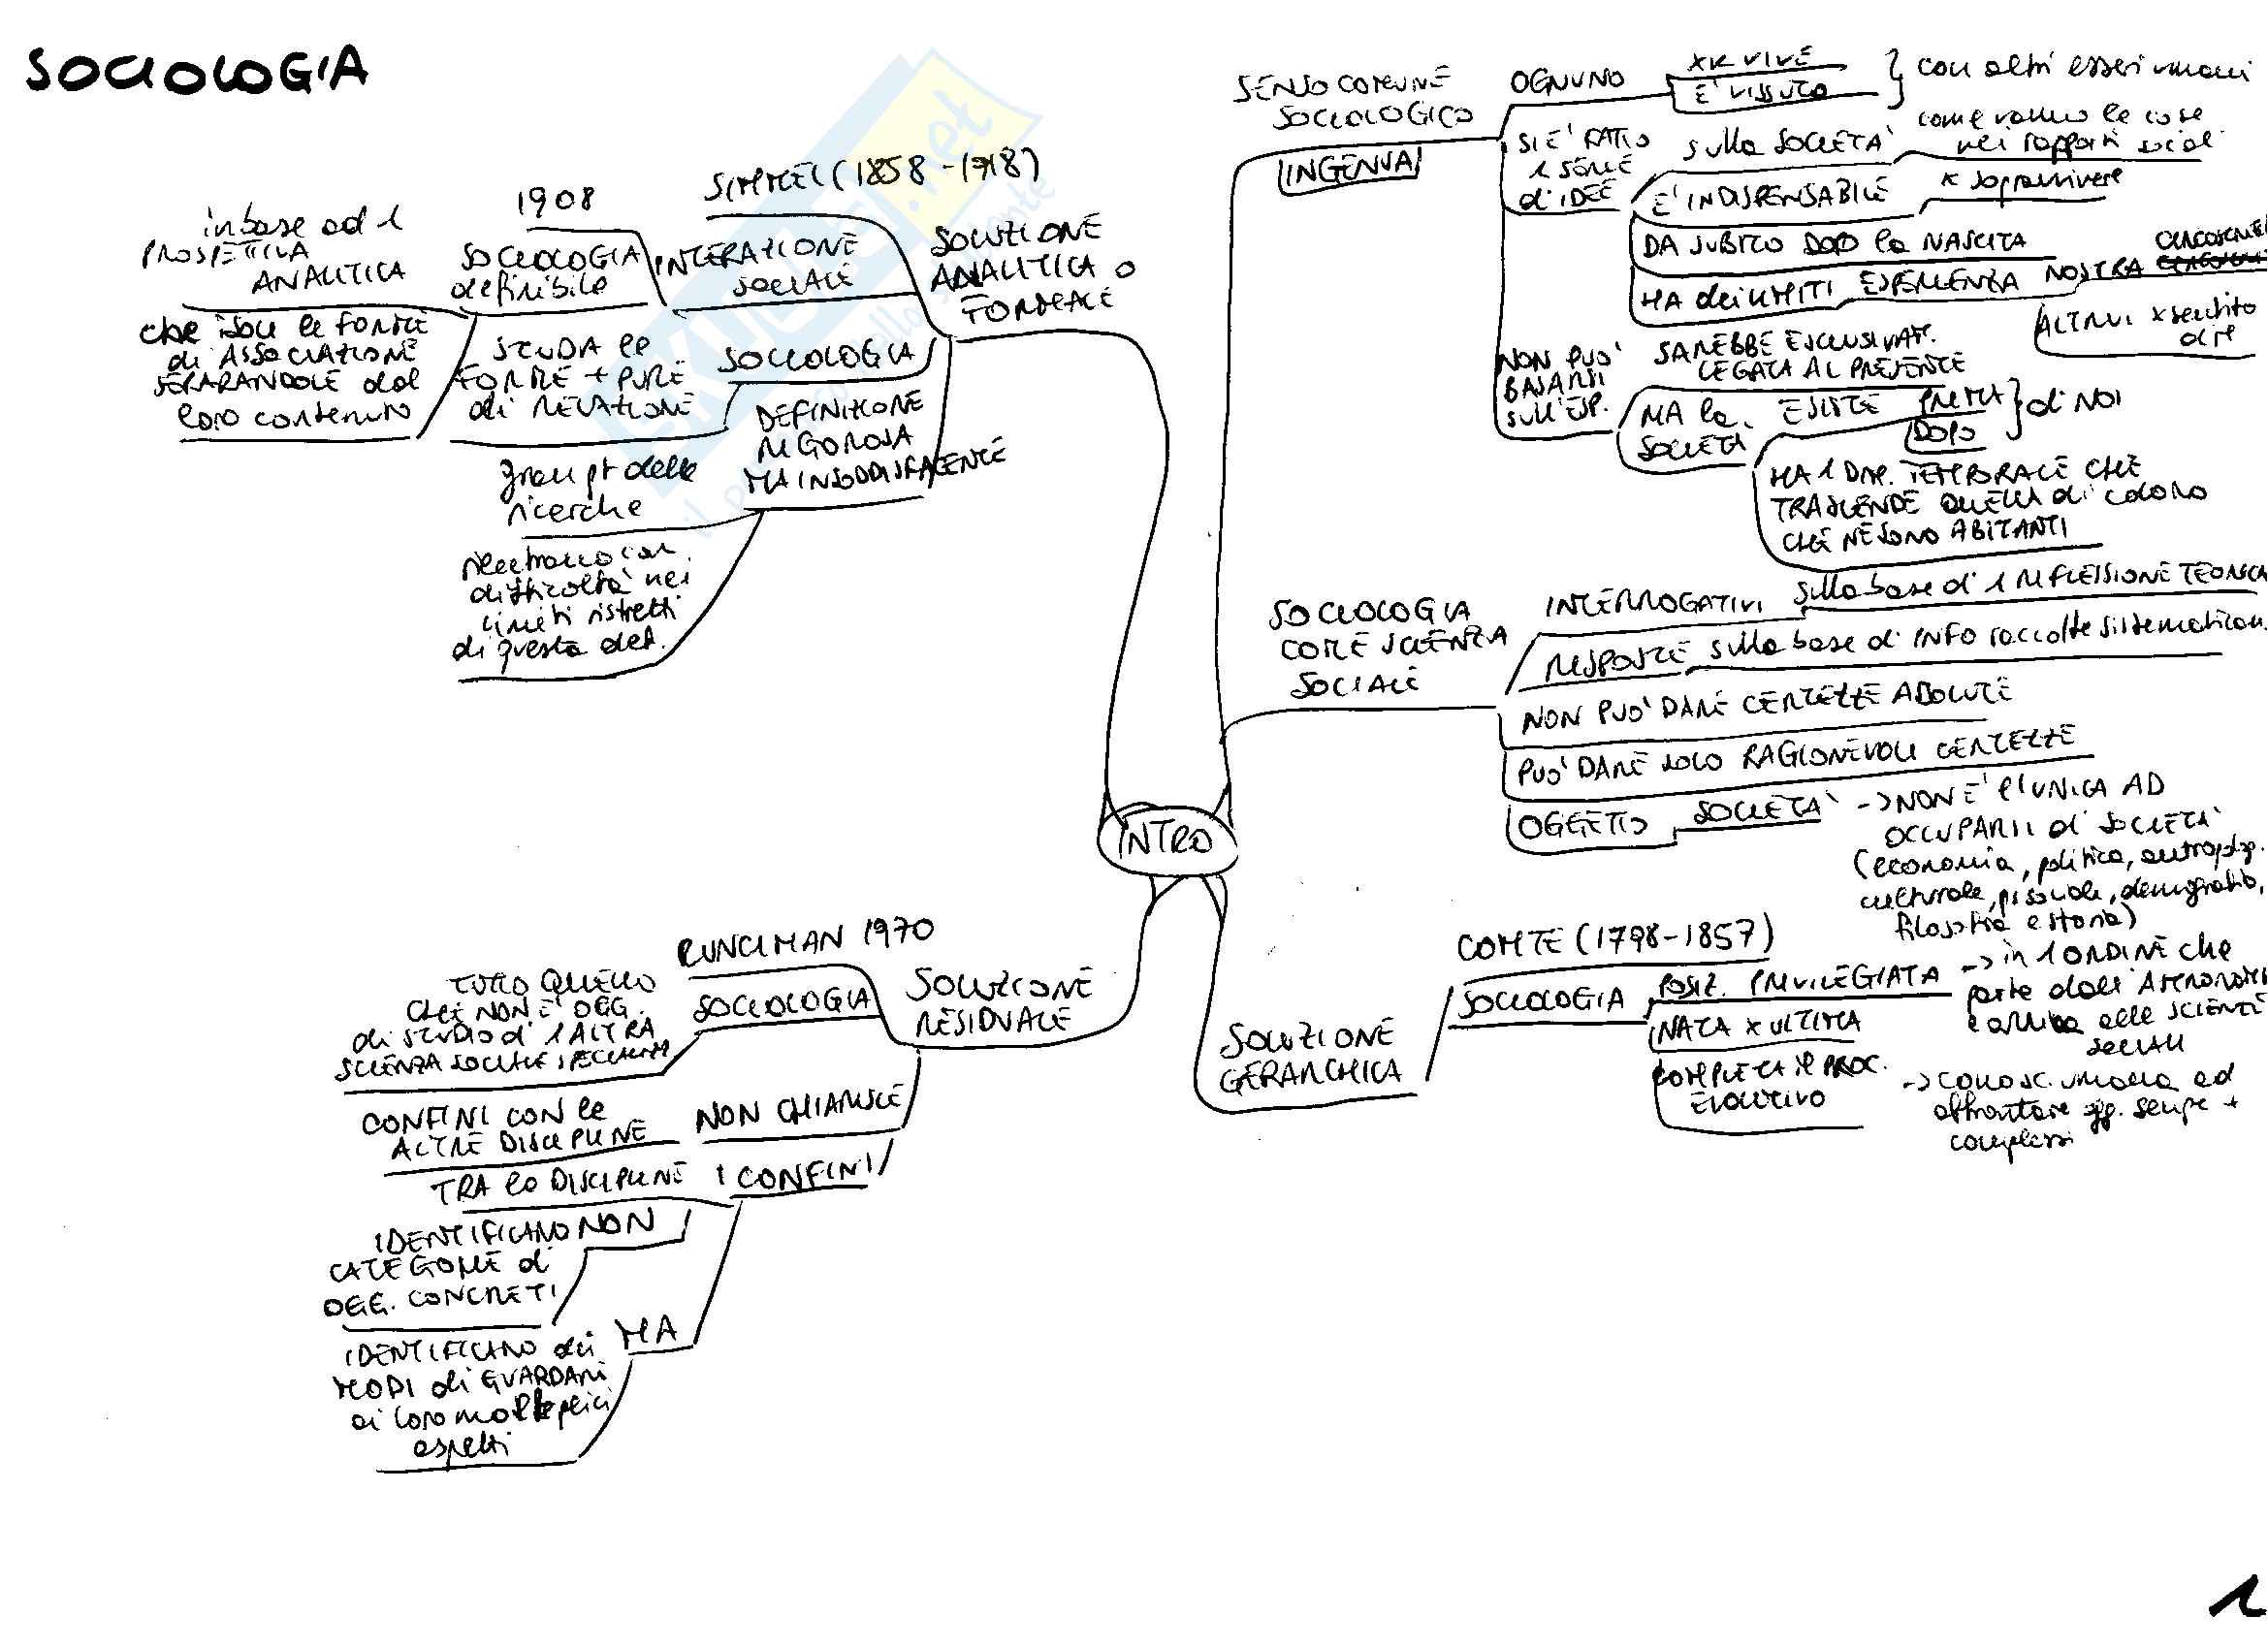 SOCIOLOGIA
SENSO COMUNE
SOCIOLOGICO
INGENUA
OGNUNO
XK VIVE
E' VISSUTO
con altri esseri umani
SI E' FATTO
1 SERIE
di IDEE
sulla SOCIETA'
come vanno le cose
nei rapporti sociali
E' INDISPENSABILE
x sopravvivere
DA SUBITO DOPO la NASCITA
HA dei LIMITI
ESPERIENZA
NOSTRA
ALTRUI
x sentito
dire
NON PUO'
BASARSI
sull'ESP.
SAREBBE ESCLUSIVAM.
LEGATA AL PRESENTE
MA la
SOCIETA'
ESISTE
PRIMA
DOPO
di NOI
HA 1 DIM. TEMPORALE CHE
TRASCENDE QUELLA di COLORO
CHE NE SONO ABITANTI
SOCIOLOGIA
COME SCIENZA
SOCIALE
INTERROGATIVI
sulla base di 1 RIFLESSIONE TEORICA
RISPOSTE
sulla base di INFO raccolte sistematicam.
NON PUO' DARE CERTEZZE ASSOLUTE
PUO' DARE SOLO RAGIONEVOLI CERTEZZE
OGGETTO
SOCIETA'
-> NON E' l'UNICA AD
OCCUPARSI di SOCIETA'
(economia, politica, antropolog.
culturale, psi sociale, demografia,
filosofia e storia)
SOLUZIONE
GERARCHICA
COMTE (1798-1857)
SOCIOLOGIA
POSIZ. PRIVILEGIATA
-> in 1 ORDINE che
parte dall'ASTRONOMIA
e arriva alle SCIENZE
SOCIALI
NATA X ULTIMA
COMPLETA il PROC.
EVOLUTIVO
-> conosc. umana ad
affrontare ogg. sempre +
complessi
SOLUZIONE
ANALITICA o
FORMALE
SIMMEL (1858-1918)
INTERAZIONE
SOCIALE
1908
SOCIOLOGIA
definibile
in base ad 1
PROSPETTIVA
ANALITICA
che isoli le FORME
di ASSOCIAZIONE
SEPARANDOLE dal
loro contenuto
SOCIOLOGIA
STUDIA le
FORME + PURE
di RELAZIONE
DEFINIZIONE
RIGOROSA
MA INSODDISFACENTE
gran pt delle
ricerche
rientrano con
difficoltà nei
limiti ristretti
di questa def.
SOLUZIONE
RESIDUALE
RUNCIMAN 1970
SOCIOLOGIA
TUTTO QUELLO
CHE NON E' OGG.
di STUDIO di 1 ALTRA
SCIENZA SOCIALE SPECIALIZZ.
NON CHIARISCE
CONFINI CON le
ALTRE DISCIPLINE
I CONFINI
TRA le DISCIPLINE
IDENTIFICANO NON
CATEGORIE di
OGG. CONCRETI
MA
IDENTIFICANO dei
MODI di GUARDARE
ai loro molteplici
aspetti
INTRO
1